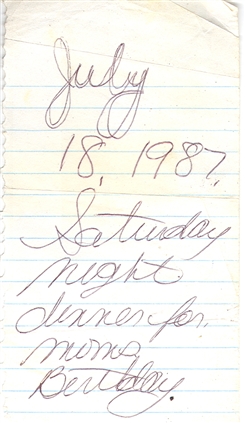 July
18, 1987.
Saturday
night
dinner for
moms
Birthday.